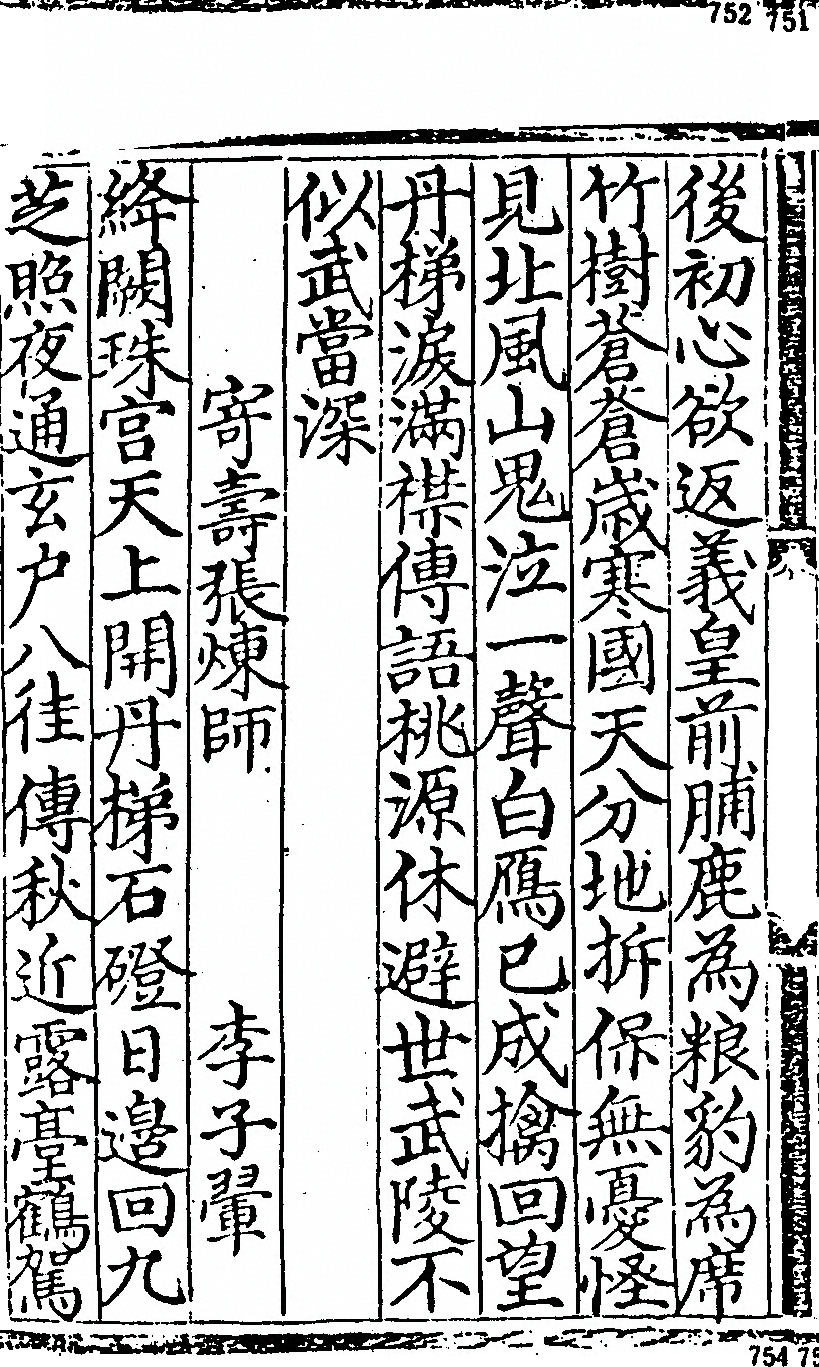 752 751
後初心欲返羲皇前脯鹿為粮豹為席
竹樹蒼蒼歲寒國天分地拆保無憂怪
見北風山鬼泣一聲白鴈已成擒回望
丹梯淚滿襟傳語桃源休避世武陵不
似武當深
寄壽張煉師 李子翬
絳闕珠宫天上開丹梯石磴日邊回九
芝照夜通玄户八徃傳秋近露臺鶴駕
754